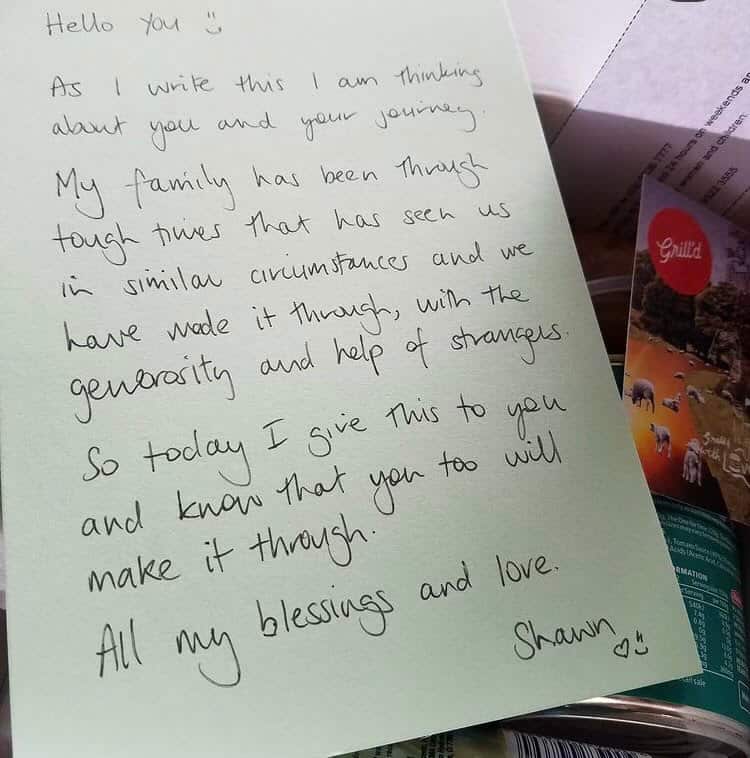 Hello You
As I write this I am thinking
about you and your journey.
My family has been through
tough times that has seen us
in similar circumstances and we
have made it through, with the
generosity and help of strangers.
So today I give this to you
and know that you too will
make it through.
All my blessings and love.
Shawn
24 hours on weekends
women and children
Grill'd